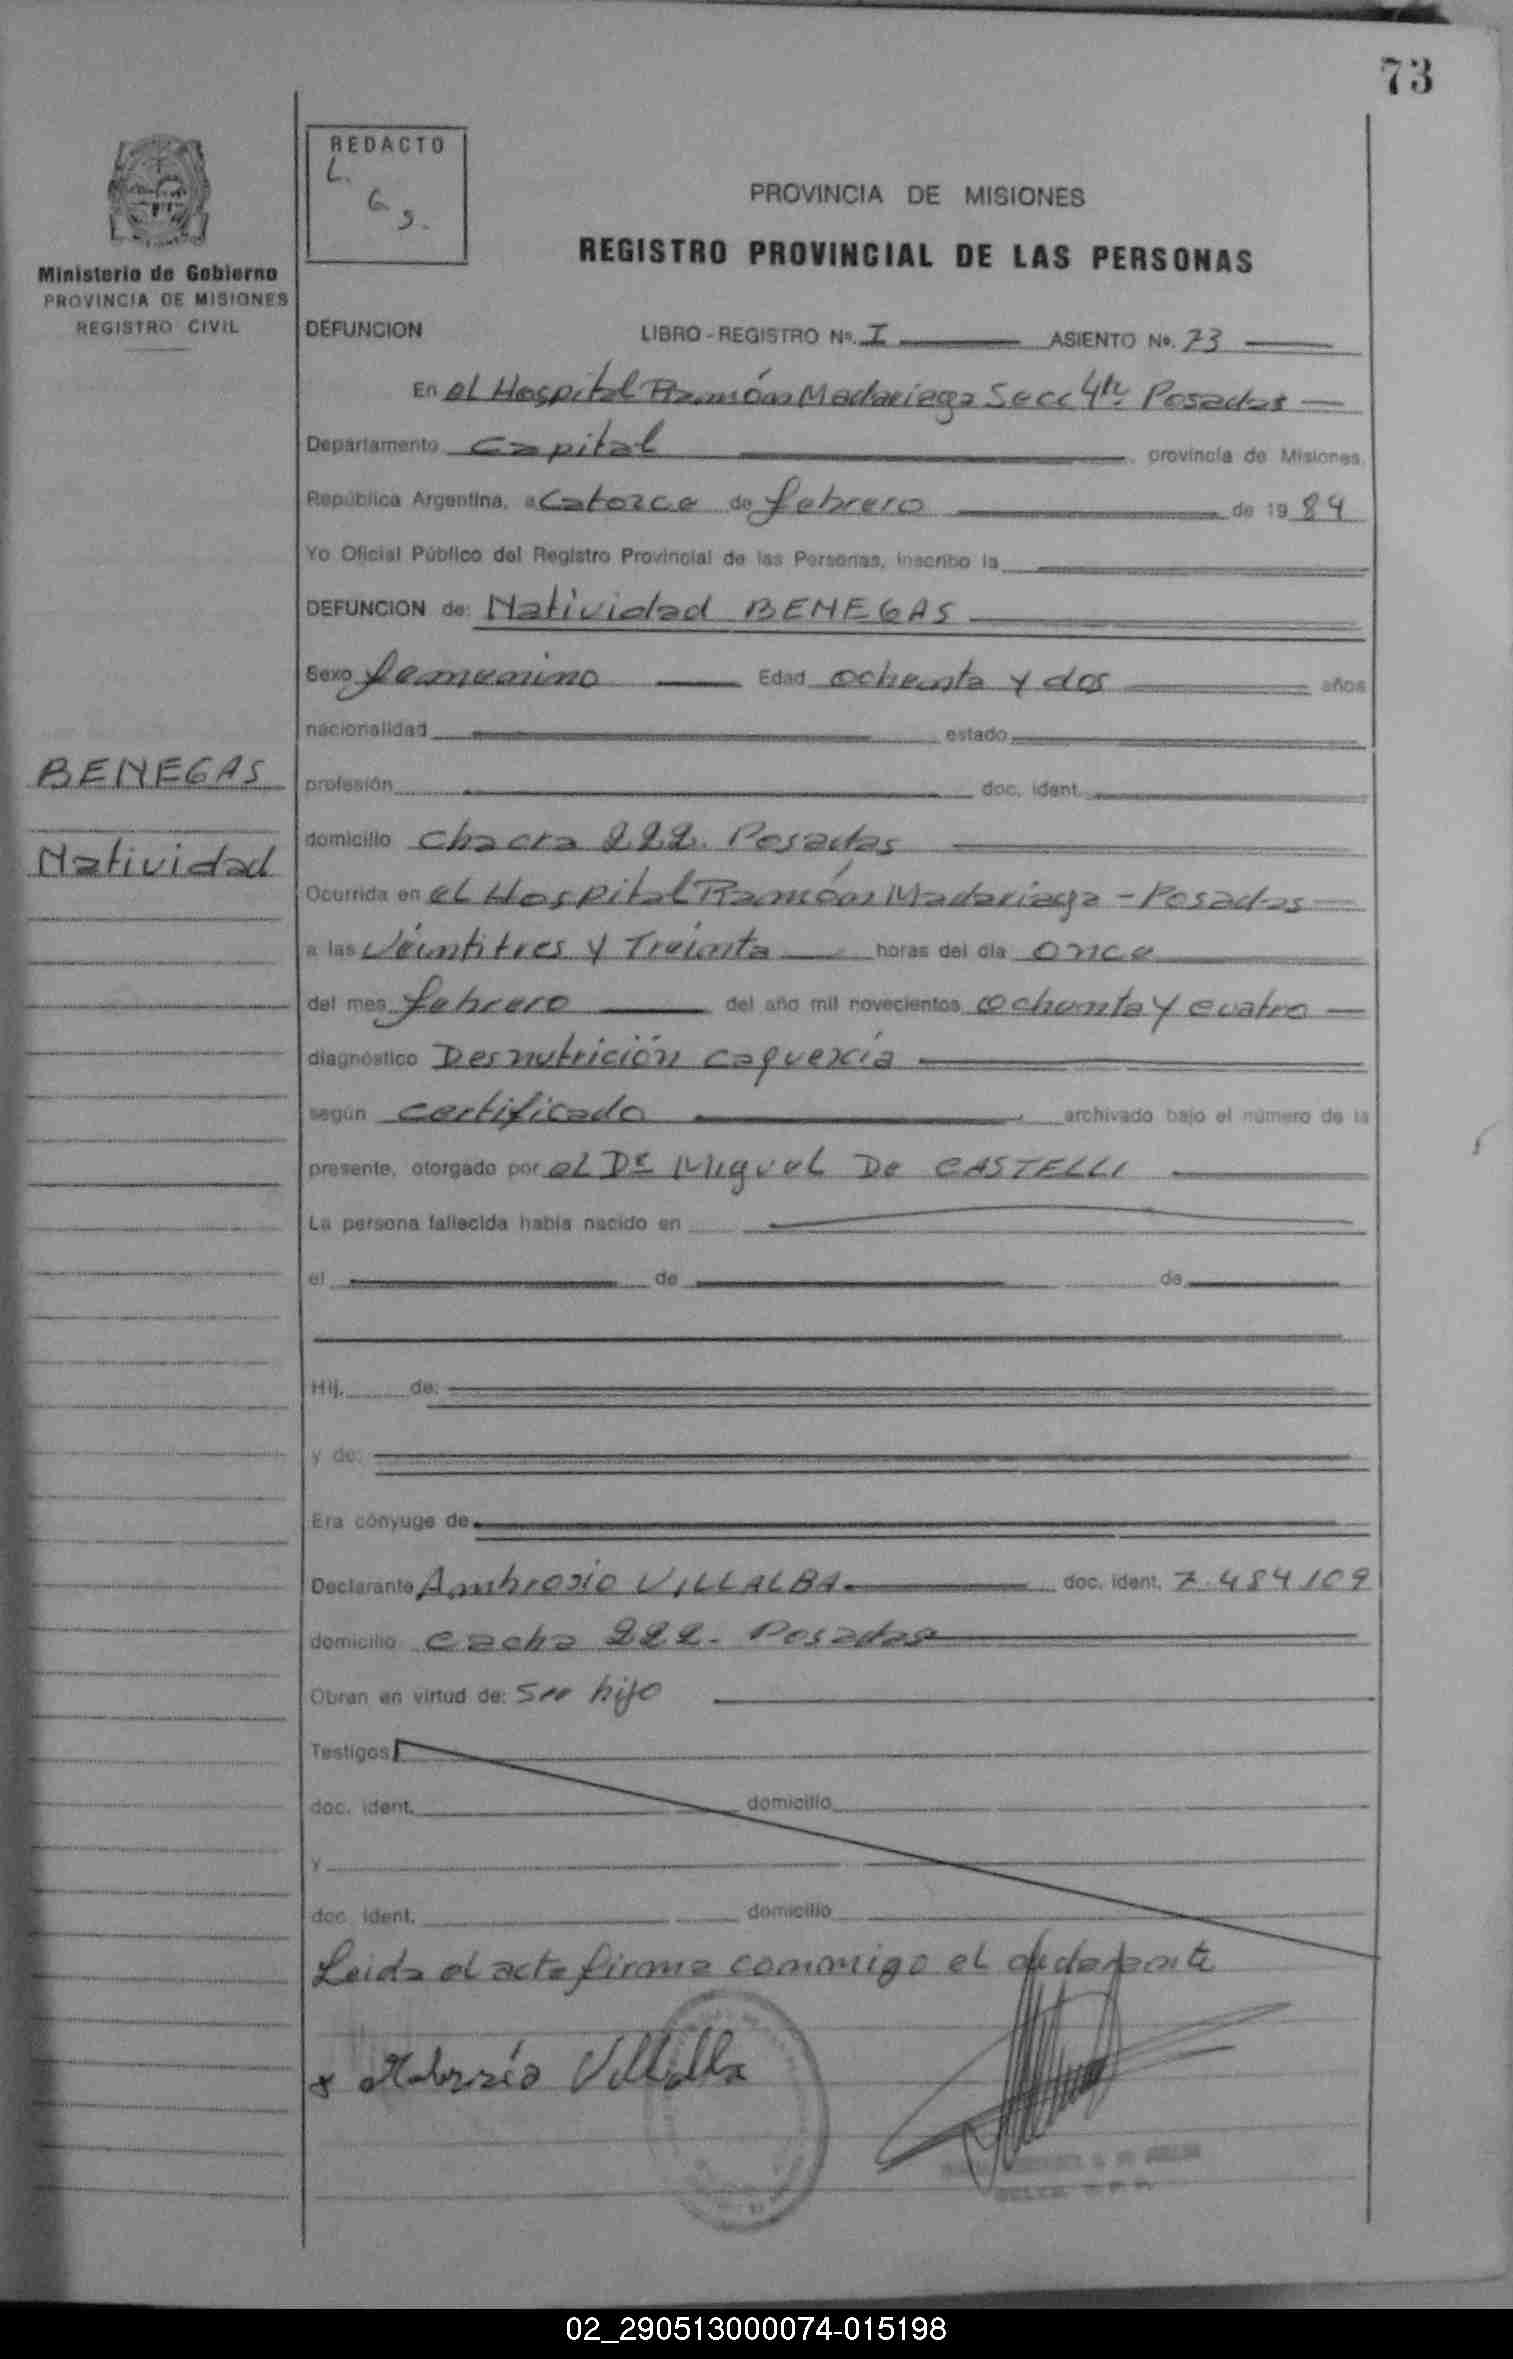 73
REDACTO
L.
G
S.
PROVINCIA DE MISIONES
REGISTRO PROVINCIAL DE LAS PERSONAS
Ministerio de Gobierno
PROVINCIA DE MISIONES
REGISTRO CIVIL
DEFUNCION LIBRO - REGISTRO Nº. I ASIENTO Nº. 73
En el Hospital Ramón Madariaga Secc 4ta. Posadas
Departamento Capital provincia de Misiones,
República Argentina, a Catorce de febrero de 19 84
Yo Oficial Público del Registro Provincial de las Personas, inscribo la
DEFUNCION de: Natividad BENEGAS
Sexo femenino Edad ochenta y dos años
nacionalidad estado
BENEGAS
profesión doc. ident.
domicilio chacra 222. Posadas
Natividad
Ocurrida en el Hospital Ramón Madariaga - Posadas
a las Veintitres y Treinta horas del día once
del mes febrero del año mil novecientos ochenta y cuatro
diagnóstico Desnutrición caquexia
según certificado archivado bajo el número de la
presente, otorgado por el Dr Miguel De CASTELLI
La persona fallecida había nacido en
el de de
Hij. de:
y de:
Era cónyuge de
Declarante Ambrosio VILLALBA doc. ident. 7.484109
domicilio cacha 222. Posadas
Obran en virtud de: Ser hijo
Testigos
doc. ident. domicilio
y
doc. ident. domicilio
Leida el acta firma conmigo el declarante
x Villalba
02_290513000074-015198